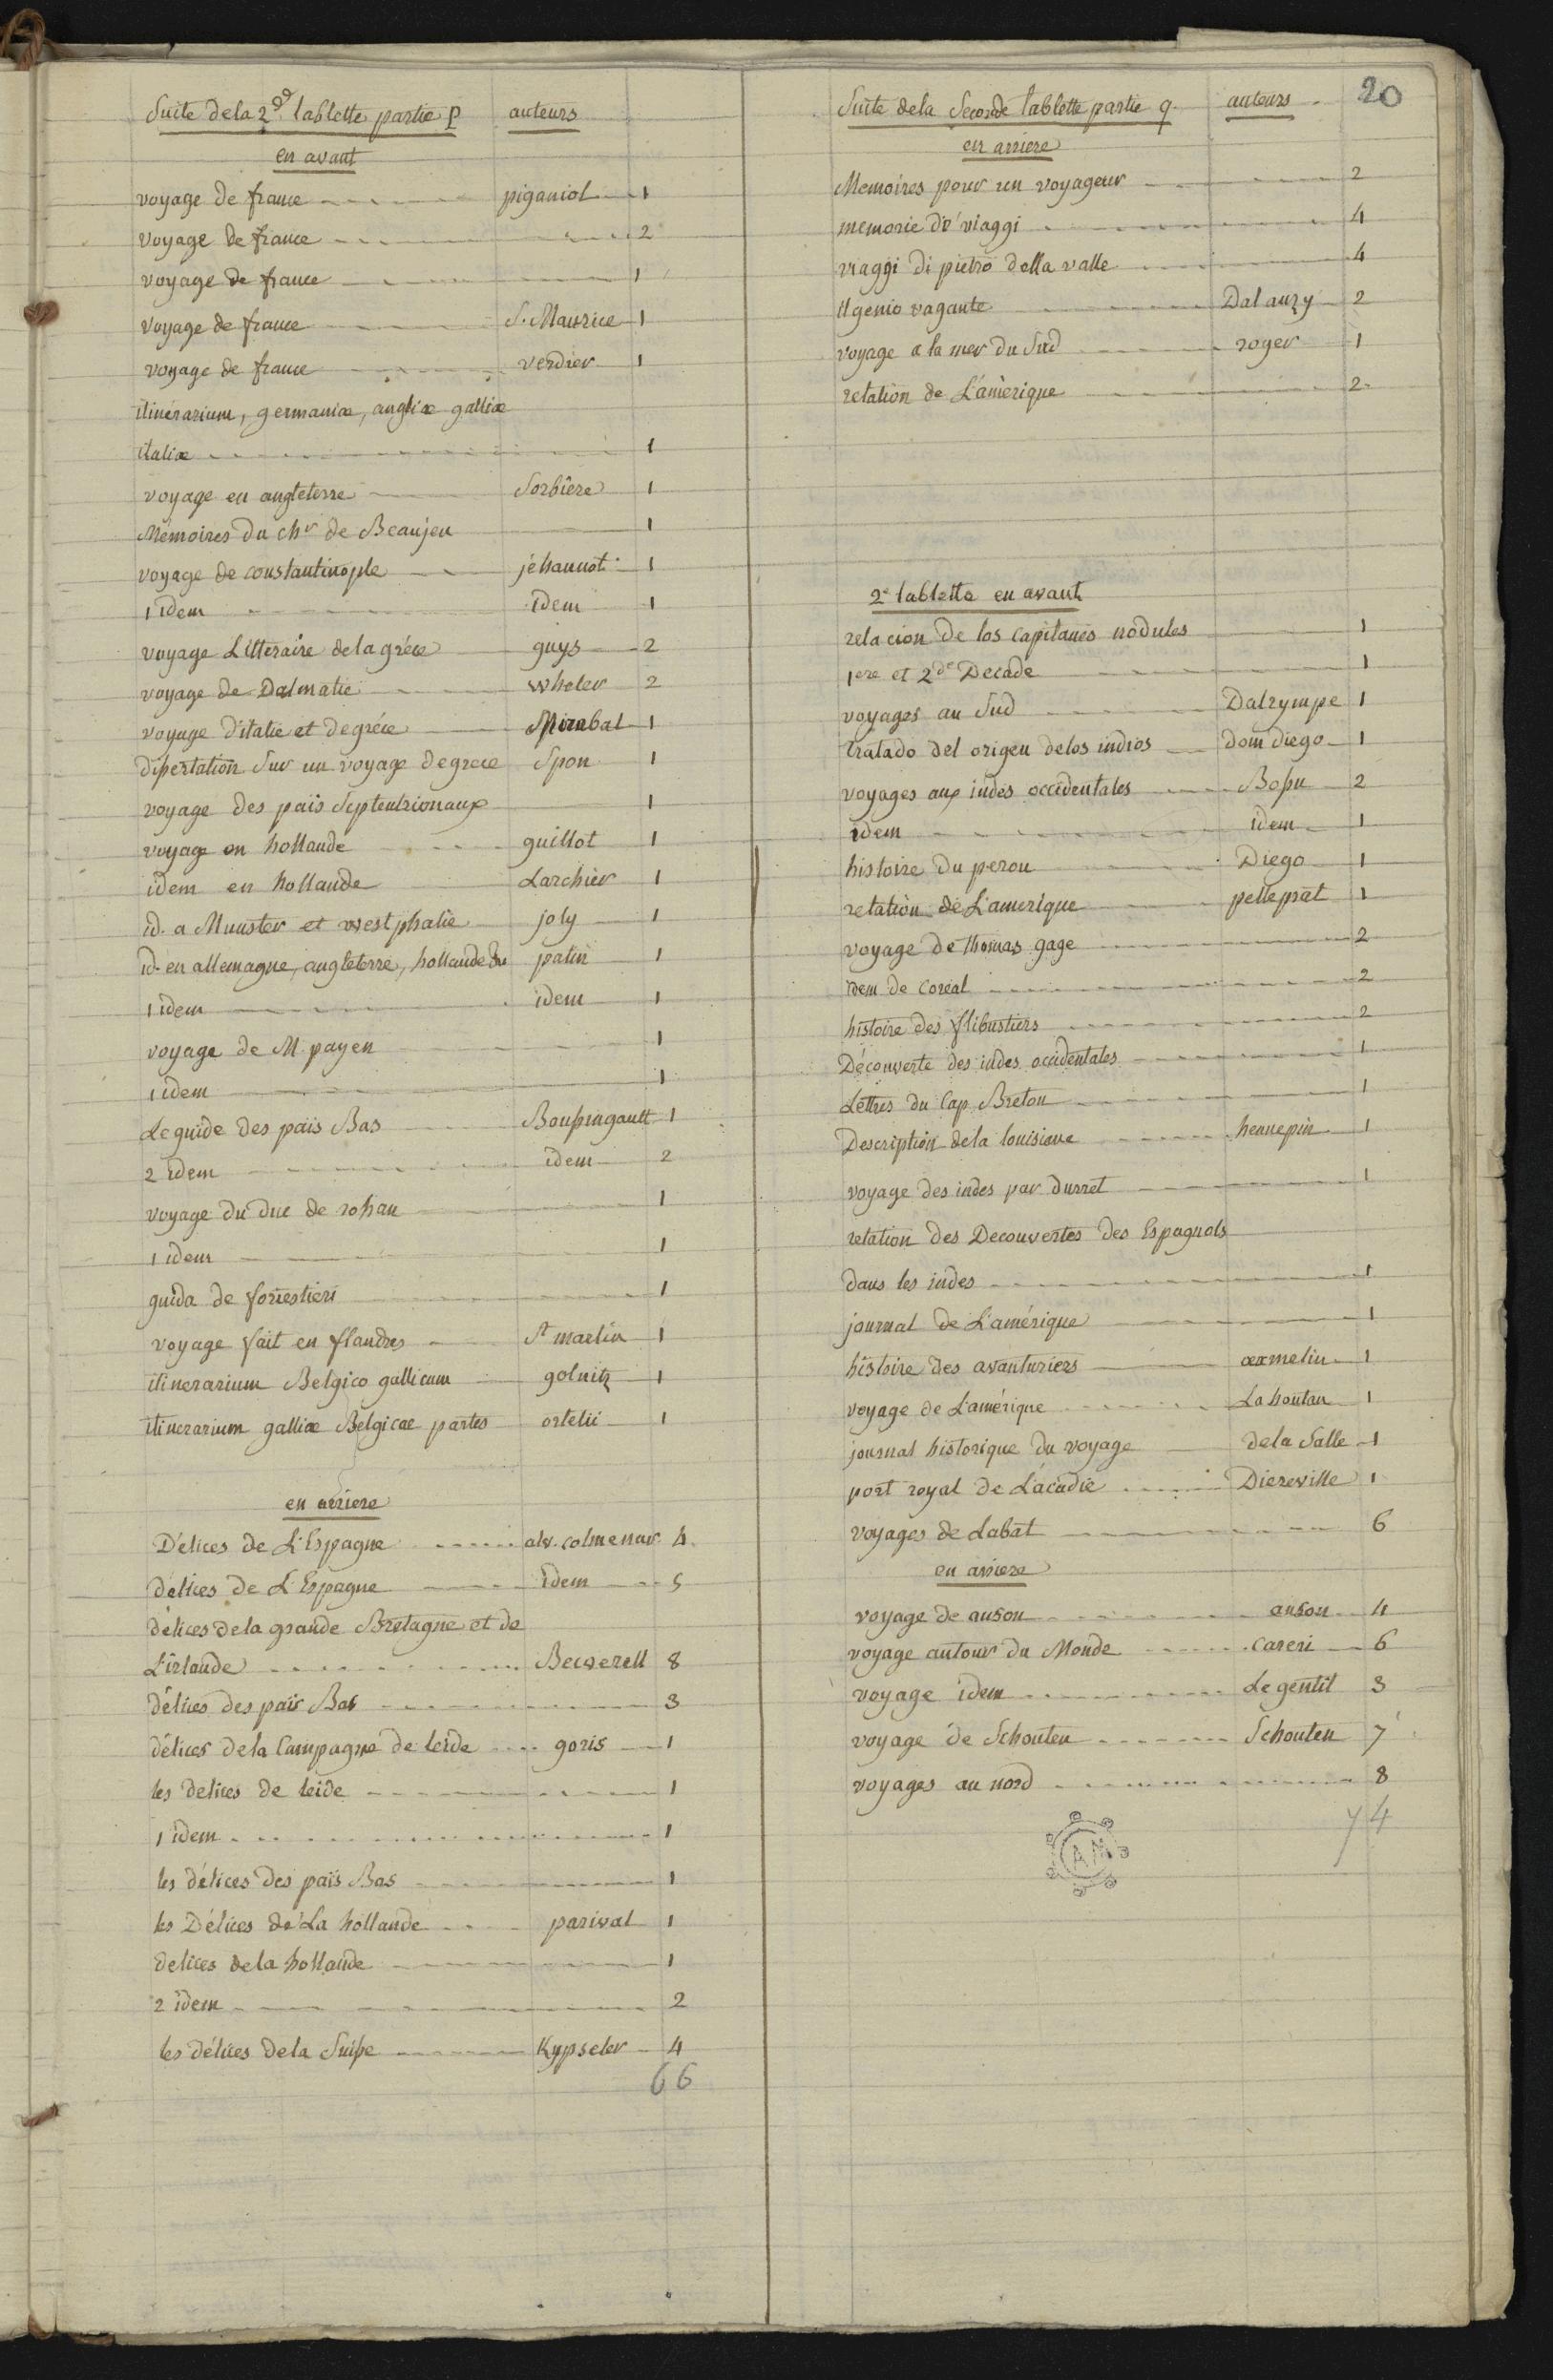 20
Suite de la 2de tablette partie P auteurs
en avant
voyage de france piganiol 1
voyage de france 2
voyage de france 1
voyage de france S. Maurice 1
voyage de france verdier 1
itinérarium, germaniæ, angliæ galliæ
italiæ 1
voyage en angleterre Sorbière 1
Mémoires du chr de Beaujeu 1
voyage de constantinople jéhannot 1
1 idem idem 1
voyage Littéraire de la gréce guys 2
voyage de Dalmatie wheler 2
voyage d'italie et de gréce Mirabal 1
dissertation Sur un voyage de grece Spon 1
voyage des païs Septentrionaux 1
voyage en hollande guillot 1
idem en hollande Larchier 1
id. a Munster et westphalie joly 1
id. en allemagne, angleterre, hollande &c patin 1
1 idem idem 1
voyage de M. payen 1
1 idem 1
Le guide des païs Bas Boussingault 1
2 idem idem 2
voyage du Duc de rohan 1
1 idem 1
guida de forrestieri 1
voyage fait en flandres St martin 1
itinerarium Belgico gallicum golnitz 1
itinerarium galliæ Belgicae partes ortelii 1
en arriere
Délices de L'Espagne alv. colmenar 4
délices de L'Espagne idem 5
délices de la grande Bretagne et de
L'irlande Beewerell 8
délices des païs Bas 3
délices de la Campagne de leide goris 1
les délices de leide 1
1 idem 1
les délices des païs Bas 1
les Délices de La hollande parival 1
delices de la hollande 1
2 idem 2
les délices de la Suisse Kypseler 4
66
Suite de la Seconde tablette partie q. auteurs
en arriere
Memoires pour un voyageur 2
memorie de viaggi 4
viaggi di pietro della valle 4
il genio vagante Dal auzy 2
voyage a la mer du Sud roger 1
relation de L'amèrique 2
2e tablette en avant
relacion de los capitanes nodules 1
1ere et 2de Decade 1
voyages au Sud Dalrympe 1
tratado del origen de los indios dom diego 1
voyages aux indes occidentales Bossu 2
idem idem 1
histoire du perou Diego 1
relation de L'amerique pelleprat 1
voyage de thomas gage 2
idem de Coreal 2
histoire des flibustiers 2
Découverte des indes occidentales 1
Lettres du Cap Breton 1
Description de la louisiane hennepin 1
voyage des indes par durret 1
relation des Decouvertes des Espagnols
dans les indes 1
journal de L'amérique 1
histoire des avanturiers oexmelin 1
voyage de L'amérique La hontan 1
journal historique du voyage de la Salle 1
port royal de L'acadie Diereville 1
voyages de Labat 6
en arriere
voyage de anson anson 4
voyage autour du Monde careri 6
voyage idem Le gentil 3
voyage de Schouten Schouten 7
voyages au nord 8
74
AM